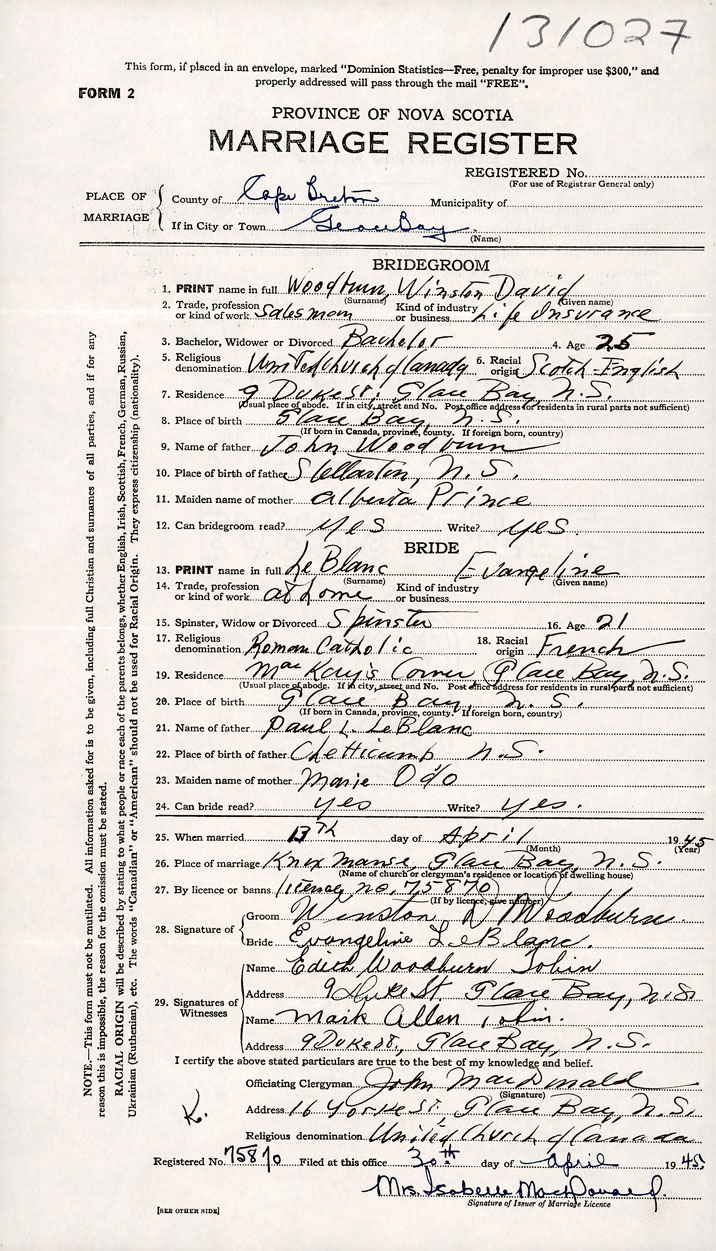 131027
This form, if placed in an envelope, marked "Dominion Statistics—Free, penalty for improper use $300," and
properly addressed will pass through the mail "FREE".
FORM 2
PROVINCE OF NOVA SCOTIA
MARRIAGE REGISTER
REGISTERED No.
(For use of Registrar General only)
PLACE OF MARRIAGE
County of Cape Breton Municipality of
If in City or Town Glace Bay.
(Name)
BRIDEGROOM
1. PRINT name in full Woodburn, Winston David
(Surname) (Given name)
2. Trade, profession or kind of work Salesman Kind of industry or business Life Insurance
3. Bachelor, Widower or Divorced Bachelor 4. Age 25
5. Religious denomination United Church of Canada 6. Racial origin Scotch-English
7. Residence 9 Duke St, Glace Bay, N.S.
(Usual place of abode. If in city, street and No. Post office address for residents in rural parts not sufficient)
8. Place of birth Glace Bay, N.S.
(If born in Canada, province, county. If foreign born, country)
9. Name of father John Woodburn
10. Place of birth of father Stellarton, N.S.
11. Maiden name of mother Alberta Prince
12. Can bridegroom read? yes Write? yes.
BRIDE
13. PRINT name in full LeBlanc Evangeline
(Surname) (Given name)
14. Trade, profession or kind of work at home Kind of industry or business
15. Spinster, Widow or Divorced Spinster 16. Age 21
17. Religious denomination Roman Catholic 18. Racial origin French
19. Residence Mac Kay's Corner, Glace Bay, N.S.
(Usual place of abode. If in city, street and No. Post office address for residents in rural parts not sufficient)
20. Place of birth Glace Bay, N.S.
(If born in Canada, province, county. If foreign born, country)
21. Name of father Paul L. LeBlanc
22. Place of birth of father Chetticamp N.S.
23. Maiden name of mother Marie Odo
24. Can bride read? yes Write? yes.
25. When married 13th day of April 1945
(Month) (Year)
26. Place of marriage Knox Manse, Glace Bay, N.S.
(Name of church or clergyman's residence or location of dwelling house)
27. By licence or banns licence no. 75870
(If by licence, give number)
28. Signature of
Groom Winston D Woodburn.
Bride Evangeline LeBlanc.
29. Signatures of Witnesses
Name Edith Woodburn Tobin
Address 9 Duke St Glace Bay, N.S.
Name Mark Allen Tobin.
Address 9 Duke St., Glace Bay, N.S.
I certify the above stated particulars are true to the best of my knowledge and belief.
Officiating Clergyman John MacDonald
(Signature)
K.
Address 16 Yorke St. Glace Bay, N.S.
Religious denomination United Church of Canada
Registered No. 75870 Filed at this office 30th day of April 1945
Mrs. Isabelle MacDonald.
Signature of Issuer of Marriage Licence
[SEE OTHER SIDE]
NOTE.—This form must not be mutilated. All information asked for is to be given, including full Christian and surnames of all parties, and if for any
reason this is impossible, the reason for the omission must be stated.
RACIAL ORIGIN will be described by stating to what people or race each of the parents belongs, whether English, Irish, Scottish, French, German, Russian,
Ukrainian (Ruthenian), etc. The words "Canadian" or "American" should not be used for Racial Origin. They express citizenship (nationality).